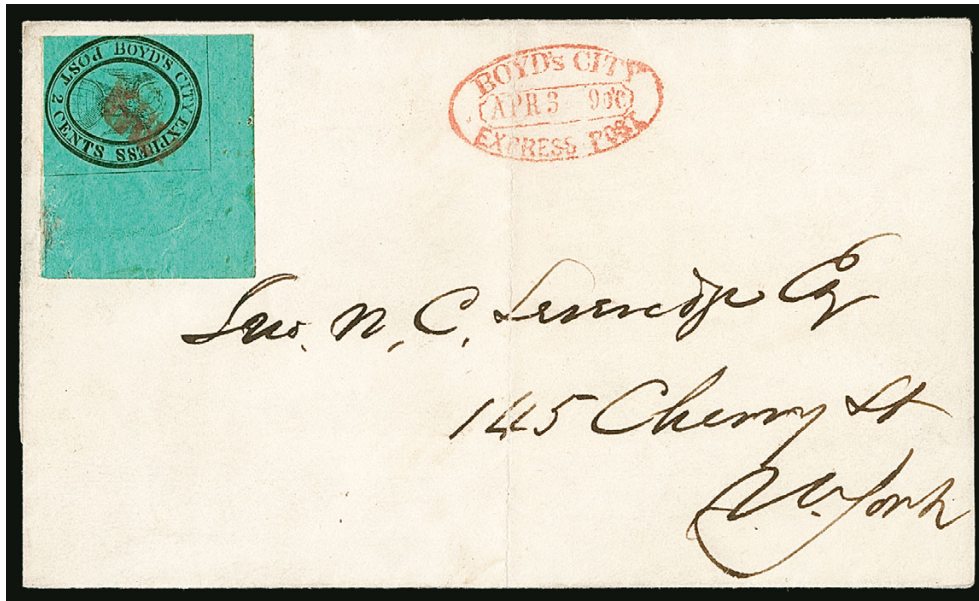 BOYD'S CITY EXPRESS POST
2 CENTS
BOYD'S CITY
APR 3 9 O'C
EXPRESS POST
N. C. Esq
145 Cherry St
N. York